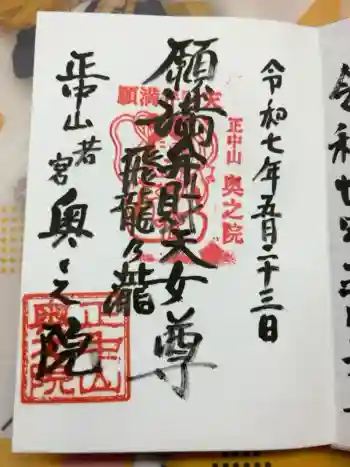 令和七年五月二十三日
正中山
奥之院
願満弁財天女尊
飛龍乃瀧
正中山
若宮
奥之院
願満
正中山
奥之院